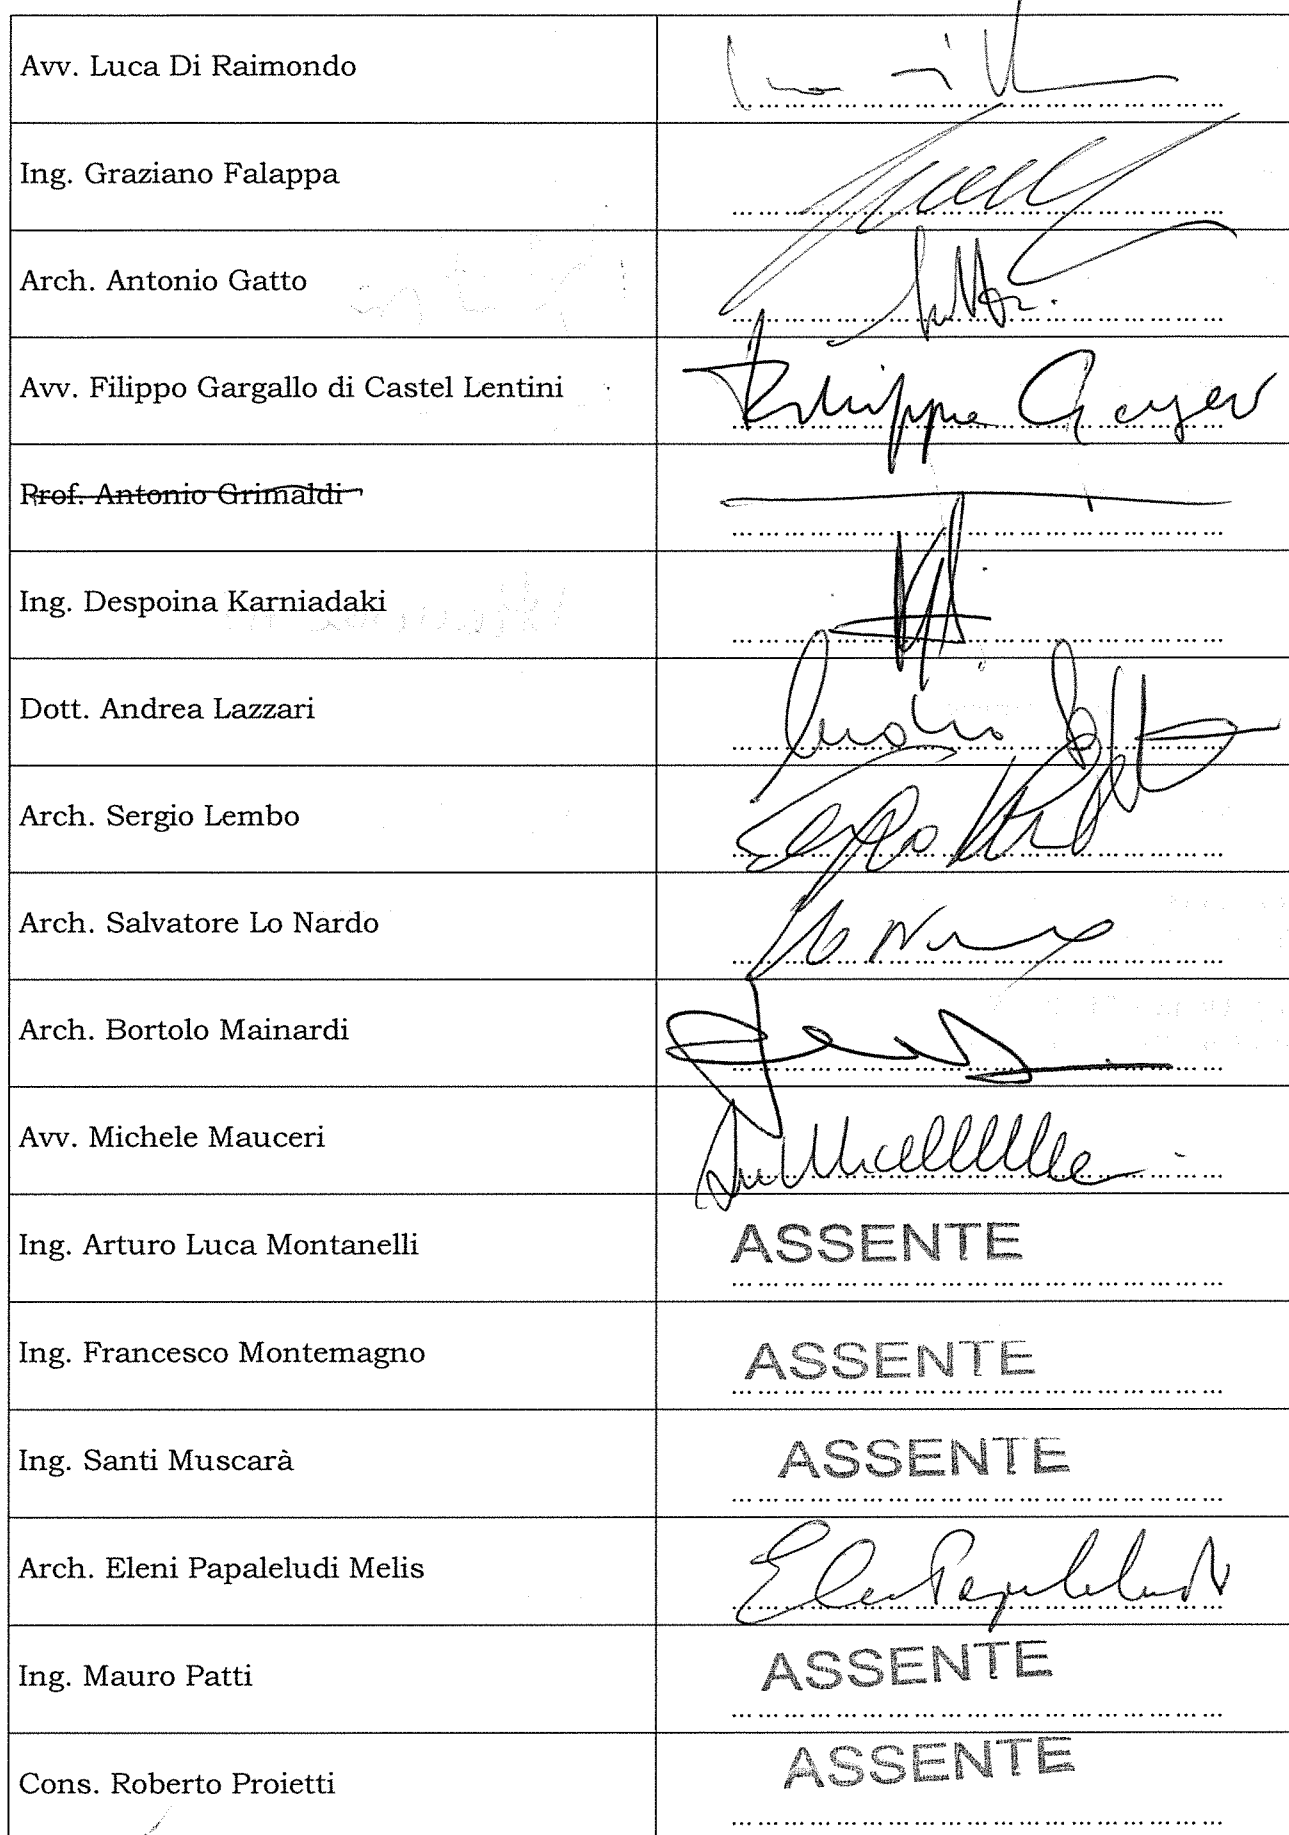 Avv. Luca Di Raimondo
Ing. Graziano Falappa
Arch. Antonio Gatto
Avv. Filippo Gargallo di Castel Lentini
Prof. Antonio Grimaldi
Ing. Despoina Karniadaki
Dott. Andrea Lazzari
Arch. Sergio Lembo
Arch. Salvatore Lo Nardo
Arch. Bortolo Mainardi
Avv. Michele Mauceri
Ing. Arturo Luca Montanelli ASSENTE
Ing. Francesco Montemagno ASSENTE
Ing. Santi Muscarà ASSENTE
Arch. Eleni Papaleludi Melis
Ing. Mauro Patti ASSENTE
Cons. Roberto Proietti ASSENTE